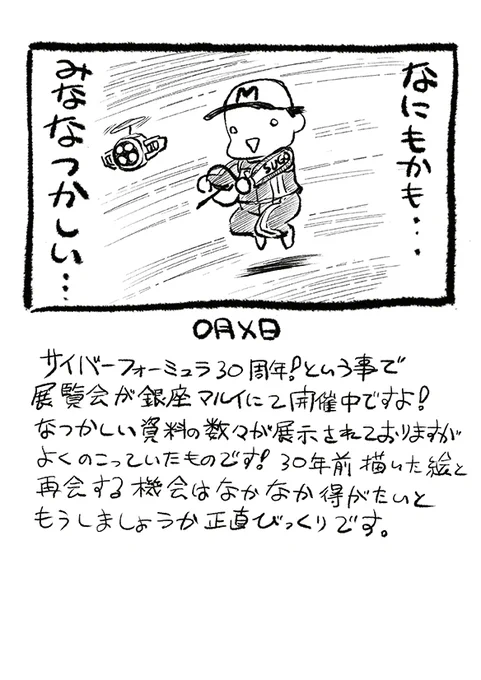 なにもかも・・・
みななつかしい・・・
M
SUGO
〇月×日
サイバーフォーミュラ30周年!という事で
展覧会が銀座マルイにて開催中ですよ!
なつかしい資料の数々が展示されておりますが
よくのこっていたものです!30年前描いた絵と
再会する機会はなかなか得がたいと
もうしましょうか正直びっくりです。